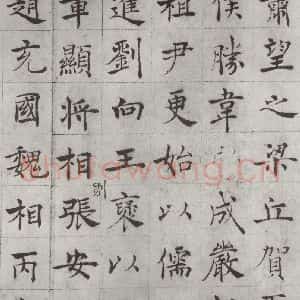 蕭望之梁丘賀
侯勝韋成嚴
祖尹更始以儒
進劉向王褒以
軍顯將相張安
趙充國魏相丙
shufawang.cn